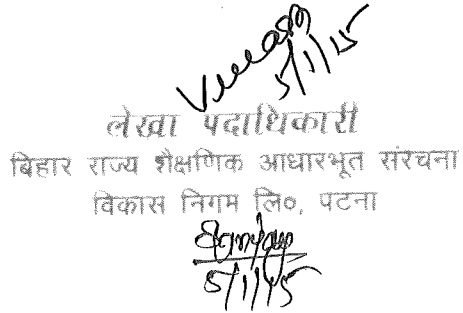 5/1/15
लेखा पदाधिकारी
बिहार राज्य शैक्षणिक आधारभूत संरचना
विकास निगम लि०, पटना
5/1/15